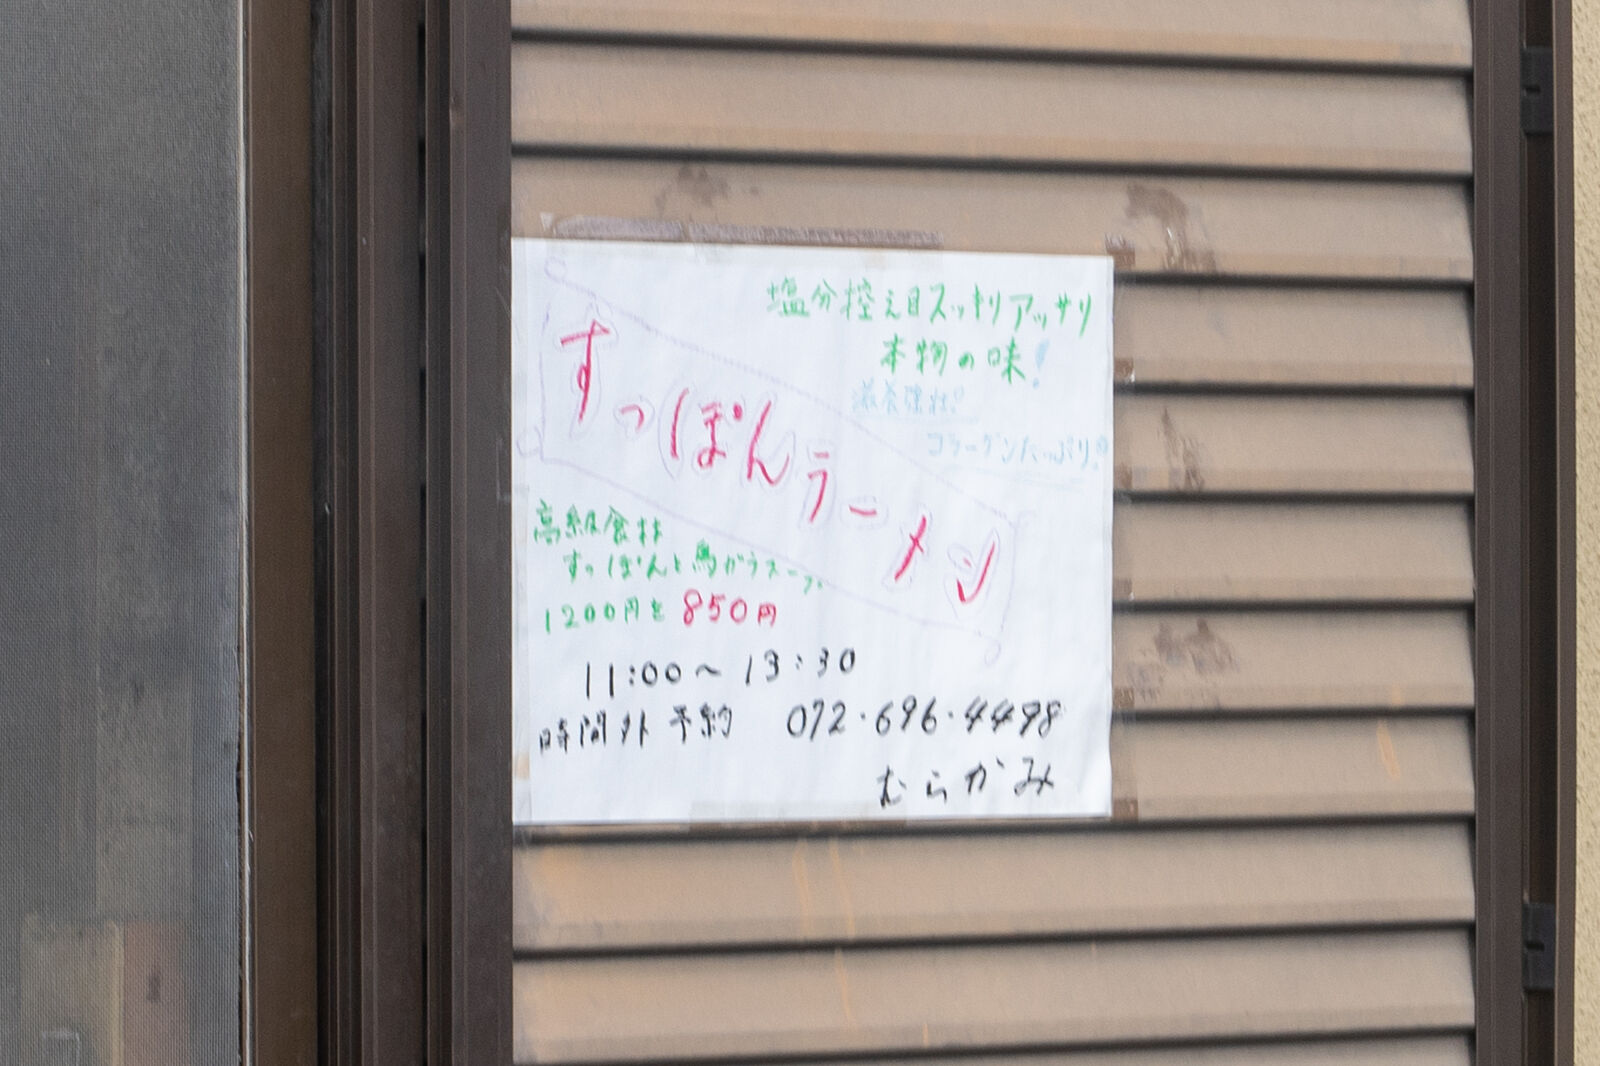 塩分控え目スッキリアッサリ
本物の味!
滋養強壮!
コラーゲンたっぷり!
すっぽんラーメン
高級食材
すっぽんと鳥ガラスープ
1200円を850円
11:00〜13:30
時間外予約 072・696・4498
むらかみ